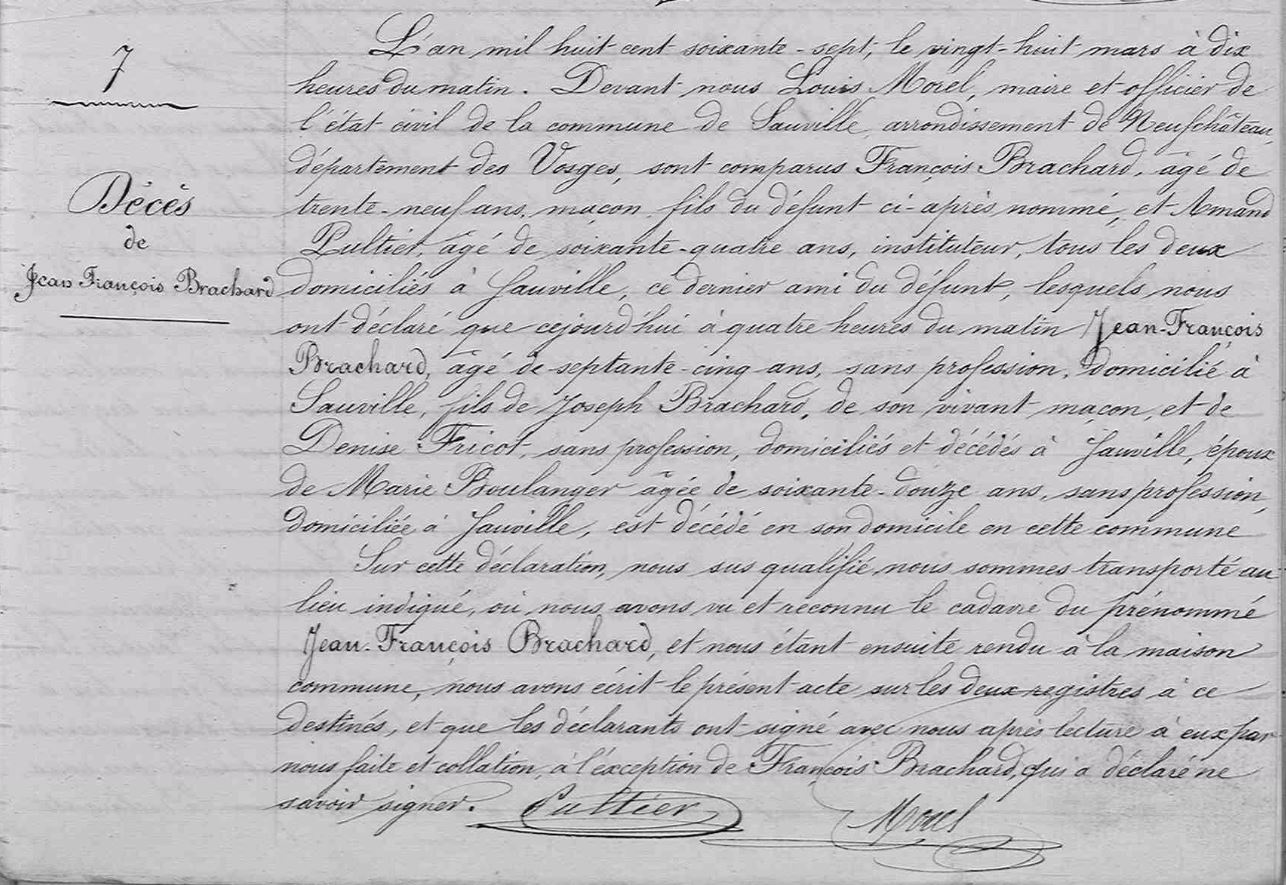 7
Décès
de
Jean François Brachard
L'an mil huit cent soixante-sept, le vingt-huit mars à dix
heures du matin. Devant nous Louis Morel, maire et officier de
l'état civil de la commune de Sauville, arrondissement de Neufchâteau,
département des Vosges, sont comparus François Brachard, âgé de
trente-neuf ans, macon, fils du défunt ci-après nommé, et Amand
Pultier, âgé de soixante-quatre ans, instituteur, tous les deux
domiciliés à Sauville, ce dernier ami du défunt, lesquels nous
ont déclaré que cejourd'hui à quatre heures du matin Jean-François
Brachard, âgé de septante-cinq ans, sans profession, domicilié à
Sauville, fils de Joseph Brachard, de son vivant maçon, et de
Denise Fricot, sans profession, domiciliés et décédés à Sauville, époux
de Marie Boulanger âgée de soixante-douze ans, sans profession,
domiciliée à Sauville, est décédé en son domicile en cette commune
Sur cette déclaration, nous sus qualifié, nous sommes transporté au
lieu indiqué, où nous avons vu et reconnu le cadavre du prénommé
Jean-François Brachard, et nous étant ensuite rendu à la maison
commune, nous avons écrit le présent acte sur les deux registres à ce
destinés, et que les déclarants ont signé avec nous après lecture à eux par
nous faite et collation, à l'exception de François Brachard, qui a déclaré ne
savoir signer. Pultier Morel